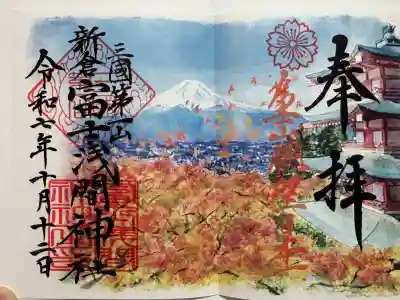 奉拝
三國第一山
新倉富士浅間神社
令和七年十月十二日